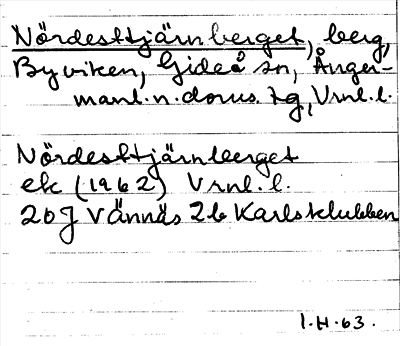 Nördesttjärnberget, berg,
Byviken, Gideå sn, Ånger-
manl.n.doms.tg, Vrnl.l.
Nördesttjärnberget
ek (1962) Vrnl.l.
20J Vännäs 2b Karlsklubben
I.H.63.